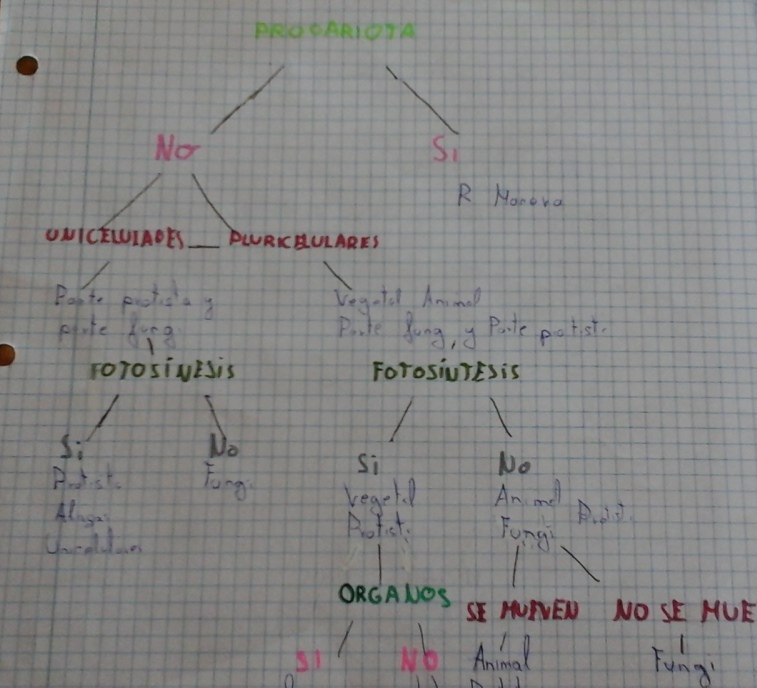 PROCARIOTA
No
Si
R Monera
UNICELULARES PLURICELULARES
Parte protista y
parte fungi
Vegetal Animal
Parte fungi, y Parte protist.
FOTOSÍNESIS
FOTOSÍNTESIS
Si
No
Protist.
Fungi
Algas
Unicelulares
Si
No
Vegetal
Protist.
Animal Protist.
Fungi
ORGANOS
SE MUEVEN
NO SE MUE
SI
NO
Animal
Fungi